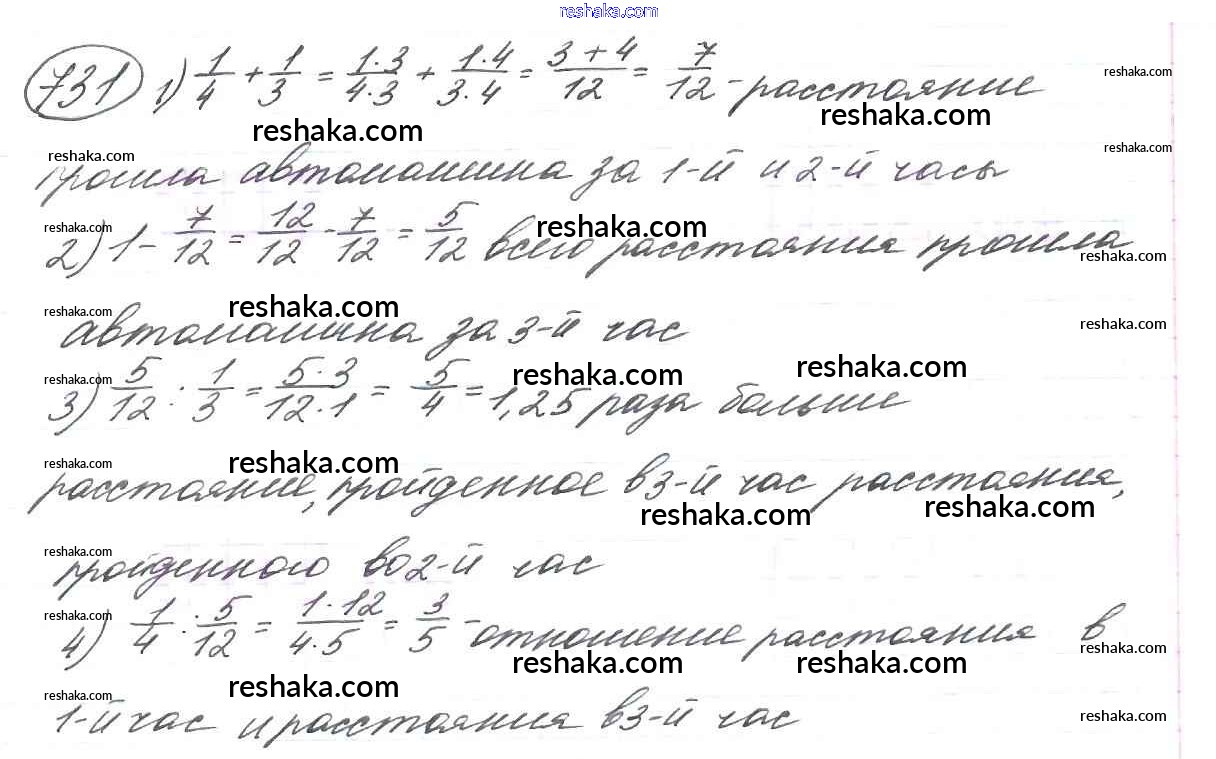 reshaka.com
731 1) 1/4 + 1/3 = 1·3/4·3 + 1·4/3·4 = 3+4/12 = 7/12 - расстояние
reshaka.com
reshaka.com reshaka.com
reshaka.com reshaka.com
прошла автомашина за 1-й и 2-й часы
reshaka.com reshaka.com
2) 1 - 7/12 = 12/12 - 7/12 = 5/12 всего расстояния прошла
reshaka.com
reshaka.com reshaka.com reshaka.com
автомашина за 3-й час
reshaka.com reshaka.com reshaka.com
3) 5/12 : 1/3 = 5·3/12·1 = 5/4 = 1,25 раза больше
reshaka.com reshaka.com
расстояние, пройденное в 3-й час расстояния,
reshaka.com reshaka.com
reshaka.com
пройденного во 2-й час
reshaka.com
4) 1/4 : 5/12 = 1·12/4·5 = 3/5 - отношение расстояния в
reshaka.com reshaka.com reshaka.com
reshaka.com reshaka.com reshaka.com
1-й час и расстояния в 3-й час